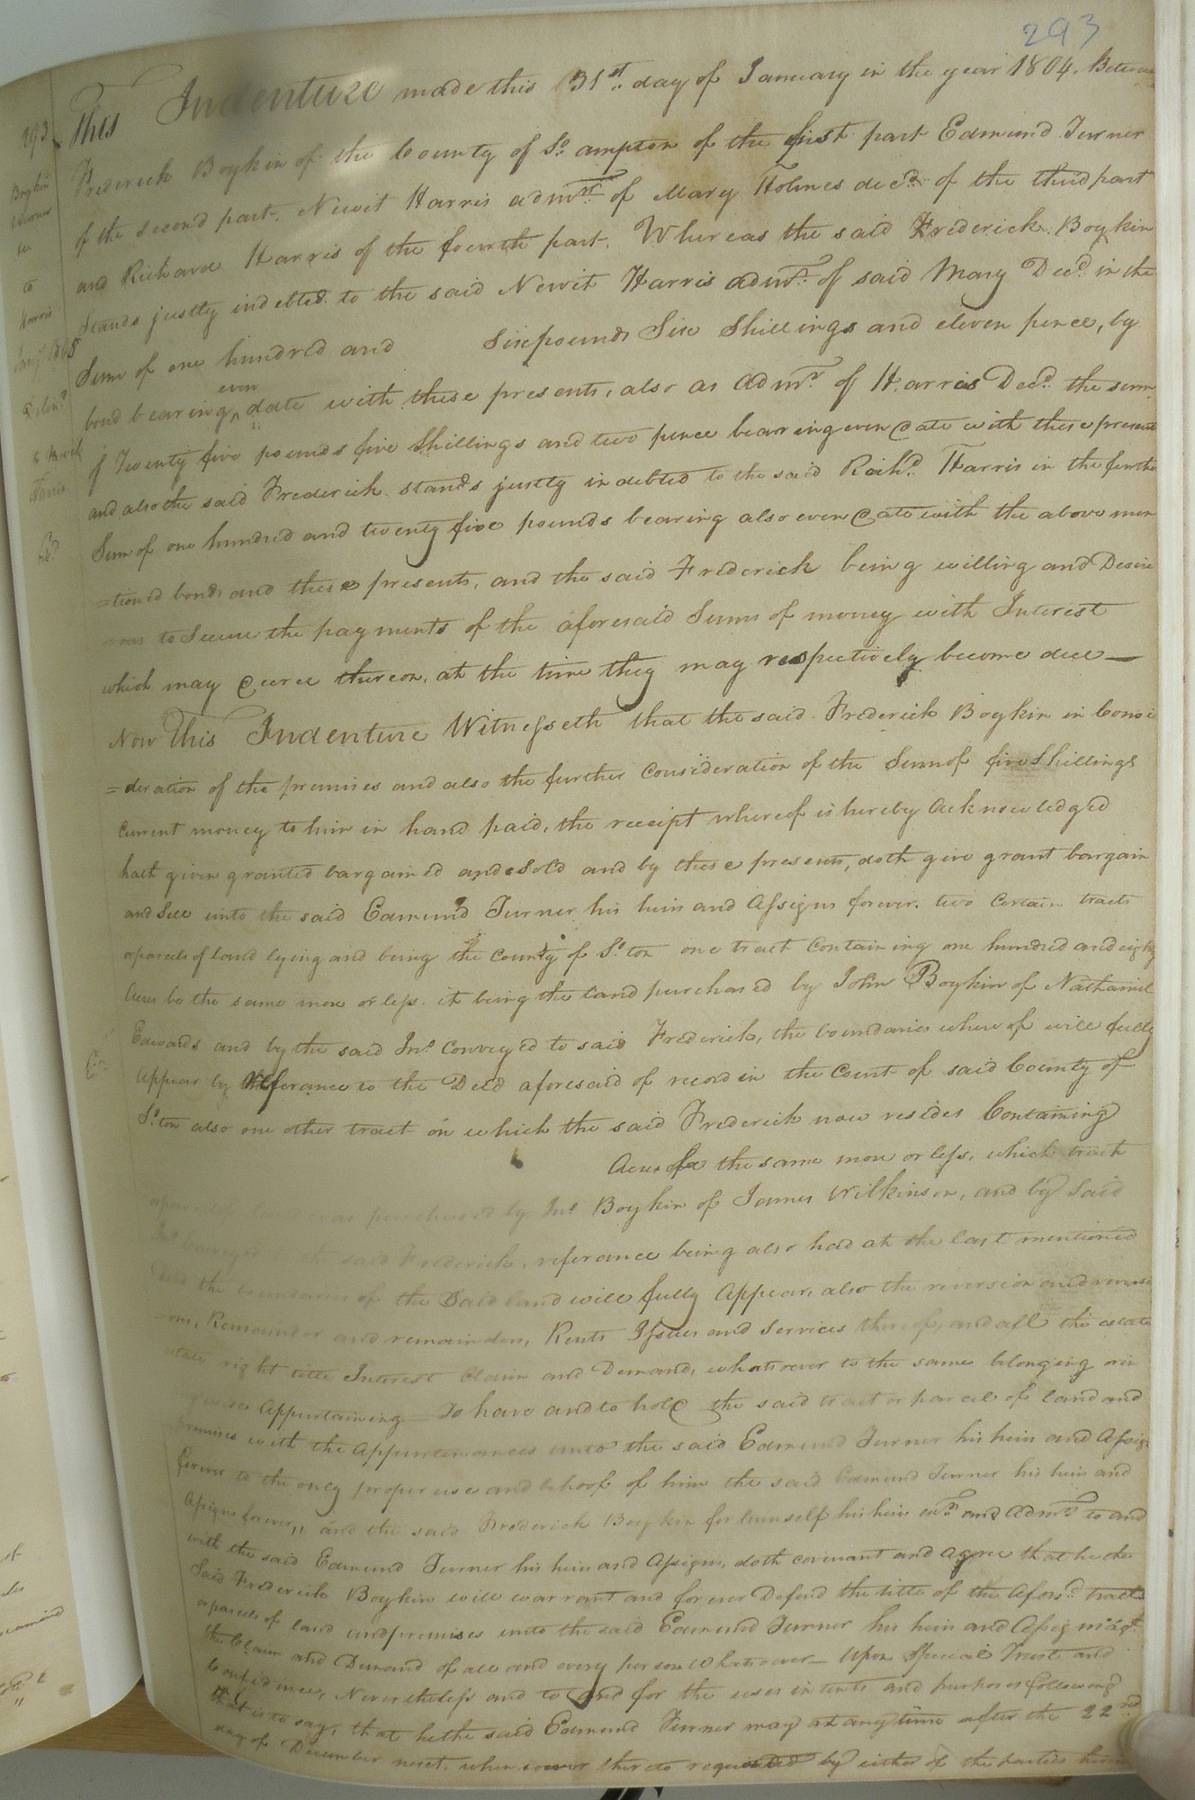 293
This Indenture made this 31st day of January in the year 1804. Between
Frederick Boykin of the County of So. ampton of the first part Edmund Turner
of the second part. Newit Harris admr. of Mary Holmes decd. of the third part
and Richard Harris of the fourth part. Whereas the said Frederick Boykin
stands justly indebted to the said Newit Harris admr. of said Mary Decd. in the
Sum of one hundred and Six pounds Six Shillings and eleven pence, by
bond bearing even date with these presents, also as admr. of Harris Decd. the sum
of Twenty five pounds five Shillings and two pence bearing even date with these presents
and also the said Frederick stands justly indebted to the said Richd. Harris in the further
Sum of one hundred and twenty five pounds bearing also even date with the above men
=tioned bonds and these presents, and the said Frederick being willing and Desire
=ous to Secure the payments of the aforesaid Sums of money with Interest
which may accrue thereon, at the time they may respectively become due —
Now This Indenture Witnesseth that the said Frederick Boykin in Consi
=deration of the premises and also the further Consideration of the Sum of five Shillings
Current money to him in hand paid, the receipt whereof is hereby Acknowledged
hath given granted bargained and Sold and by these presents, doth give grant bargain
and Sell unto the said Edmund Turner his heirs and Assigns forever. two Certain tracts
or parcels of Land lying and being in the County of So. ton one tract Containing one hundred and eighty
Acres be the same more or less. it being the land purchased by John Boykin of Nathaniel
Edwards and by the said Jno. Conveyed to said Frederick, the boundaries whereof will fully
Appear by referance to the Deed aforesaid of record in the Court of said County of
So. ton also one other tract on which the said Frederick now resides Containing
Acres be the same more or less, which tract
or parcel of was purchased by Jno. Boykin of James Wilkinson, and by said
Jno. conveyed to the said Frederick, referance being also had at the last mentioned
Deed the boundaries of the Said land will fully Appear, also the reversion and revers
=ons, Remainder and remainders, Rents Issues and Services thereof, and all the estate
right title Interest Claim and Demand, whatsoever to the same belonging or in
Appertaining To have and to hold the said tract or parcel of land and
premises with the Appurtenances unto the said Edmund Turner his heirs and Assigns
forever to the only proper use and behoof of him the said Edmund Turner his heirs and
Assigns forever, and the said Frederick Boykin for himself his heirs exrs. and Admrs. to and
with the said Edmund Turner his heirs and Assigns, doth covenant and agree that he the
Said Frederick Boykin will warrant and forever Defend the title of the Aforesd. tracts
or parcels of land and premises unto the said Edmund Turner his heirs and Assigns agst.
the Claim and Demand of all and every person Whatsoever — Upon Special Trust and
Confidence, Nevertheless and to and for the uses intents and purposes following
that is to say, that he the said Edmund Turner may at any time after the 22nd
day of December next, when ever thereto requested by either of the parties